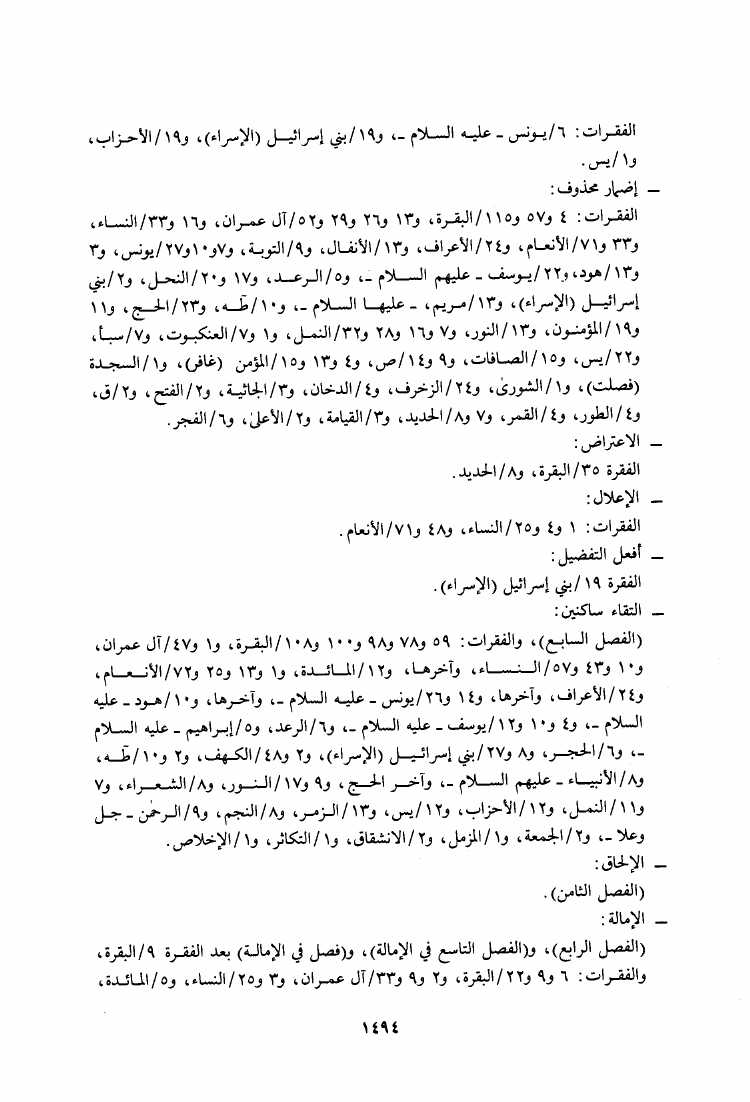 الفقرات: ٦/يونس ـ عليه السلام ـ، و١٩/بني إسرائيل (الإسراء)، و١٩/الأحزاب،
و١/يس.
ـ إضمار محذوف:
الفقرات: ٤ و٥٧ و١١٥/البقرة، و١٣ و٢٦ و٢٩ و٥٢/آل عمران، و١٦ و٣٣/النساء،
و٣٣ و٧١/الأنعام، و٢٤/الأعراف، و١٣/الأنفال، و٩/التوبة، و٧و١٠و٢٧/يونس، و٣
و١٣/هود، و٢٢/يوسف ـ عليهم السلام ـ، و٥/الرعد، و١٧ و٢٠/النحل، و٢/بني
إسرائيل (الإسراء)، و١٣/مريم، ـ عليها السلام ـ، و١٠/طه، و٢٣/الحج، و١١
و١٩/المؤمنون، و١٣/النور، و٧ و١٦ و٢٨ و٣٢/النمل، و١ و٧/العنكبوت، و٧/سبأ،
و٢٢/يس، و١٥/الصافات، و٩ و١٤/ص، و٤ و١٣ و١٥/المؤمن (غافر)، و١/السجدة
(فصلت)، و١/الشورى، و٢٤/الزخرف، و٤/الدخان، و٣/الجاثية، و٢/الفتح، و٢/ق،
و٤/الطور، و٤/القمر، و٧ و٨/الحديد، و٣/القيامة، و٢/الأعلى، و٦/الفجر.
ـ الاعتراض:
الفقرة ٣٥/البقرة، و٨/الحديد.
ـ الإعلال:
الفقرات: ١ و٤ و٢٥/النساء، و٤٨ و٧١/الأنعام.
ـ أفعل التفضيل:
الفقرة ١٩/بني إسرائيل (الإسراء).
ـ التقاء ساكنين:
(الفصل السابع)، والفقرات: ٥٩ و٧٨ و٩٨ و١٠٠ و١٠٨/البقرة، و١ و٤٧/آل عمران،
و١٠ و٤٣ و٥٧/النساء، وآخرها، و١٢/المائدة، و١ و١٣ و٢٥ و٧٢/الأنعام،
و٢٤/الأعراف، وآخرها، و١٤ و٢٦/يونس ـ عليه السلام ـ، وآخرها، و١٠/هود ـ عليه
السلام ـ، و٤ و١٠ و١٢/يوسف ـ عليه السلام ـ، و٦/الرعد، و٥/إبراهيم ـ عليه السلام
ـ، و٦/الحجر، و٨ و٢٧/بني إسرائيل (الإسراء)، و٢ و٤٨/الكهف، و٢ و١٠/طه،
و٨/الأنبياء ـ عليهم السلام ـ، وآخر الحج، و٩ و١٧/النور، و٨/الشعراء، و٧
و١١/النمل، و١٢/الأحزاب، و١٢/يس، و١٣/الزمر، و٨/النجم، و٩/الرحمن ـ جل
وعلا ـ، و٢/الجمعة، و١/المزمل، و٢/الانشقاق، و١/التكاثر، و١/الإخلاص.
ـ الإلحاق:
(الفصل الثامن).
ـ الإمالة:
(الفصل الرابع)، و(الفصل التاسع في الإمالة)، و(فصل في الإمالة) بعد الفقرة ٩/البقرة،
والفقرات: ٦ و٩ و٢٢/البقرة، و٢ و٩ و٣٣/آل عمران، و٣ و٢٥/النساء، و٥/المائدة،
١٤٩٤